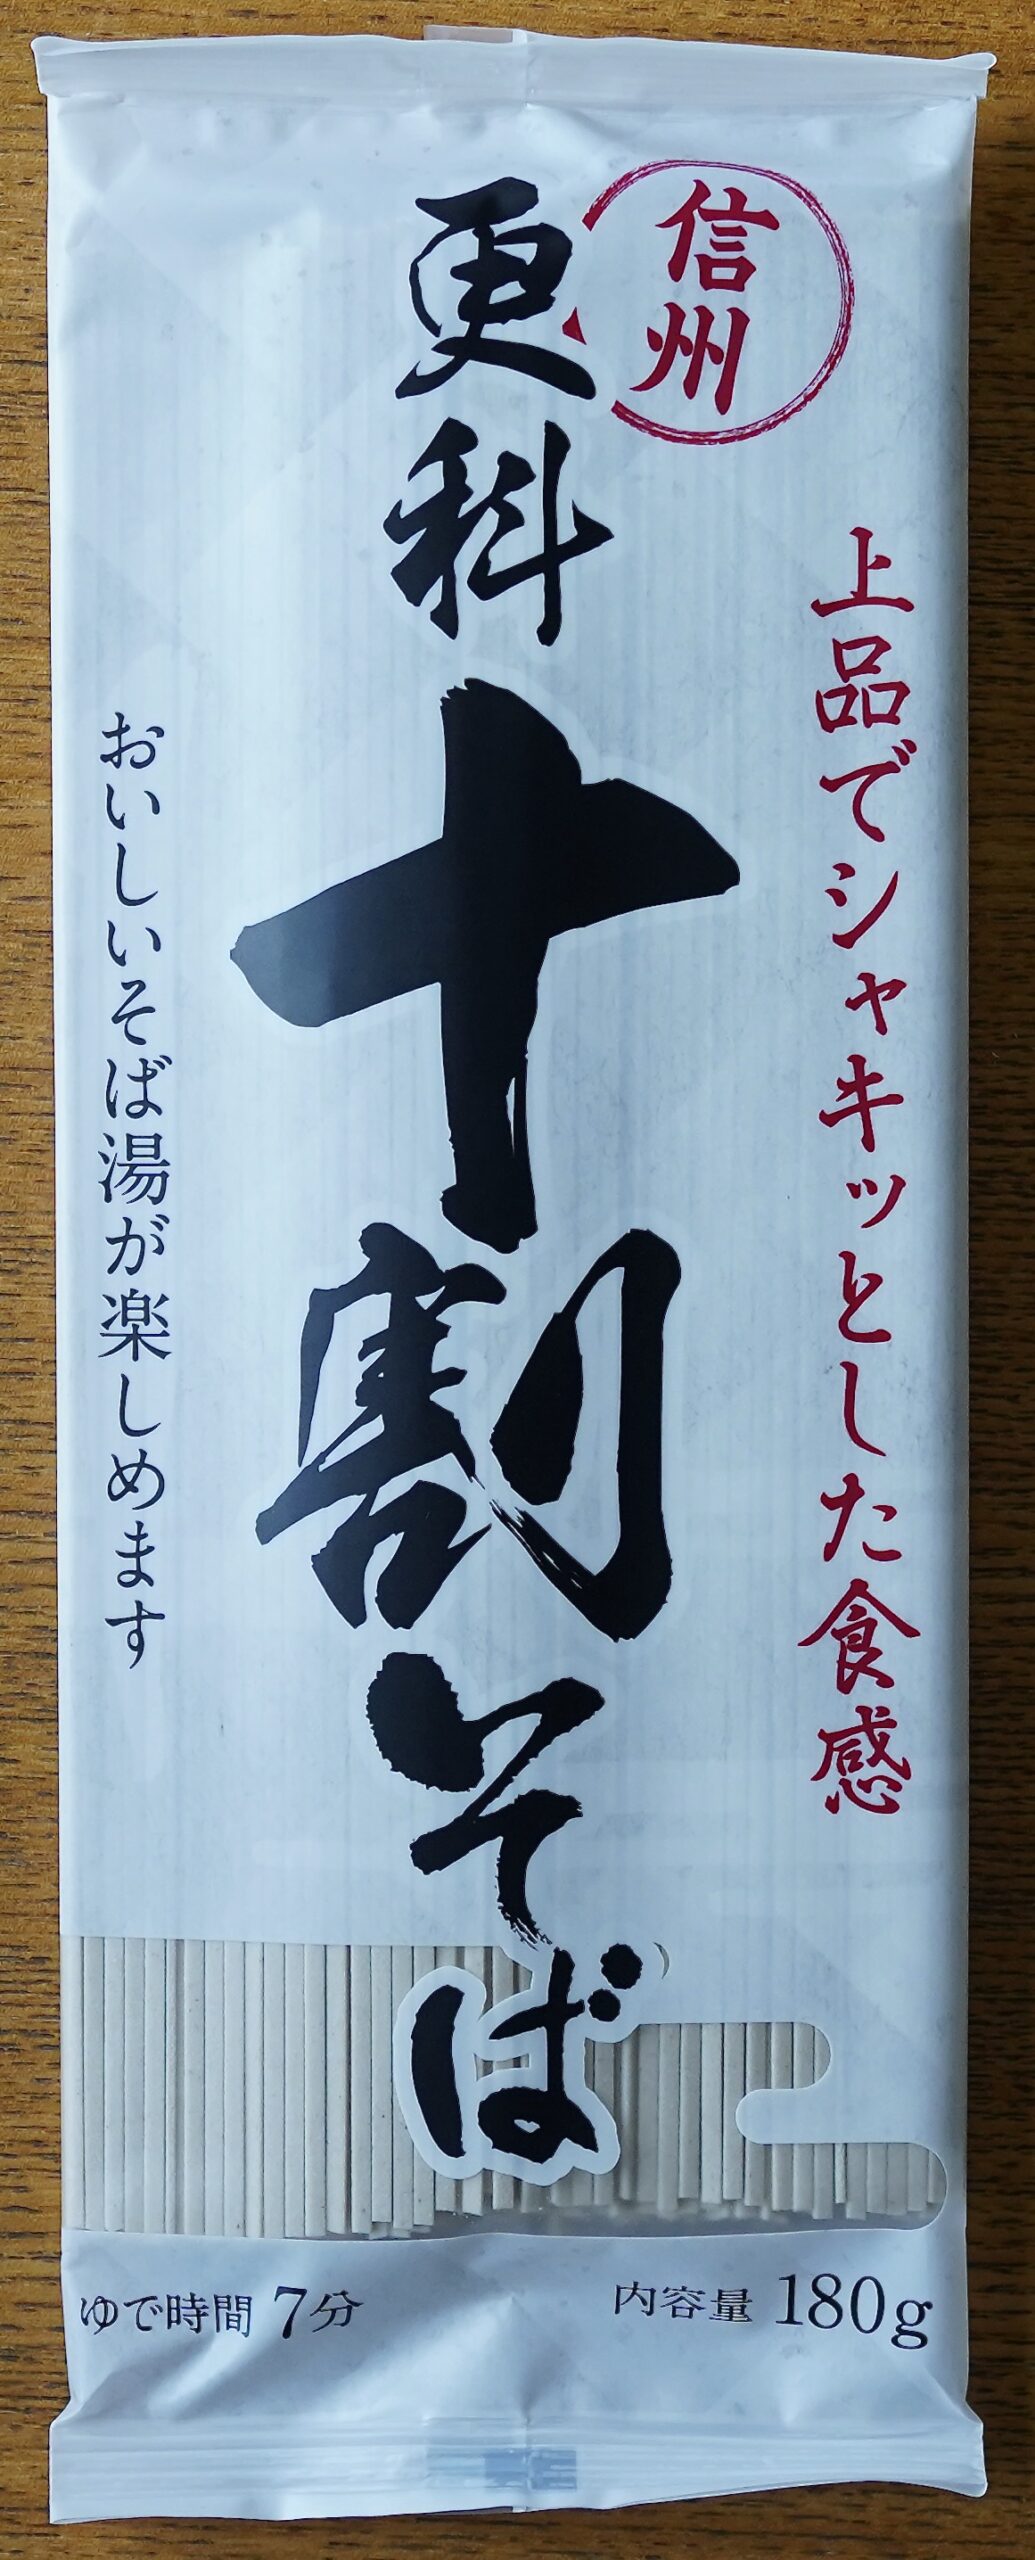 信州
上品でシャキッとした食感
更科
十割そば
おいしいそば湯が楽しめます
ゆで時間 7分
内容量 180g